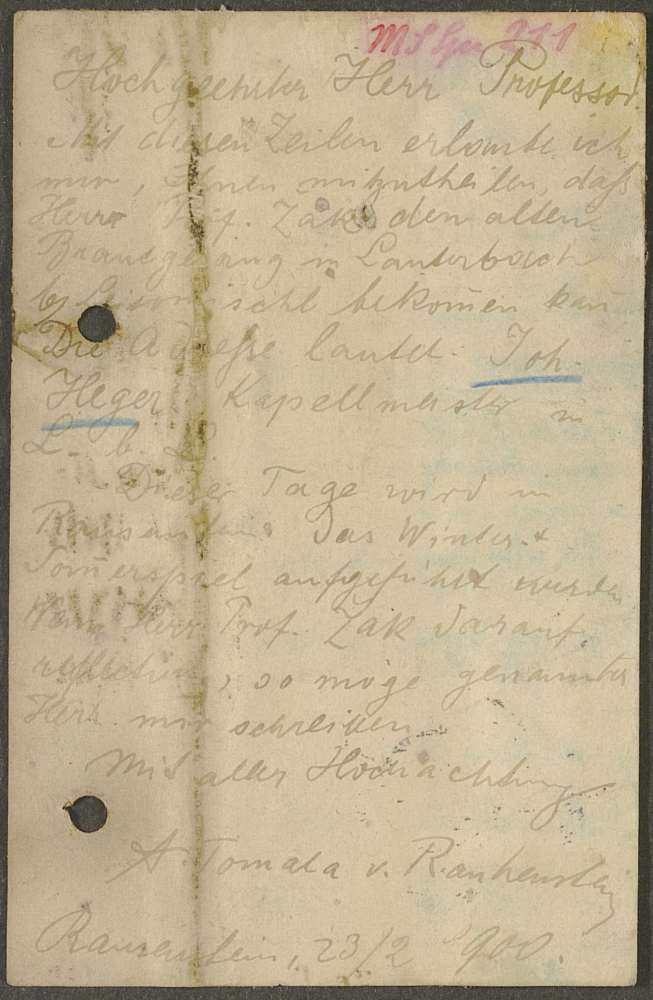 Hochgeehrter Herr Professor.
Mit diesen Zeilen erlaubte ich
mir, Ihnen mitzutheilen, daß
Herr Prof. Zák den alten
Brautgesang in Lauterbach
b/ bekom̄en kan̄
Die Adreße lautet. Joh.
Heger Kapellmeister in
L. b. L.
Dieser Tage wird in
das Winter &
Som̄erspiel aufgeführt werden
Wen̄ Herr Prof. Zák darauf
, so möge genannter
Herr mir schreiben
Mit aller Hochachtung
A. Tomala v.
23/2 900.